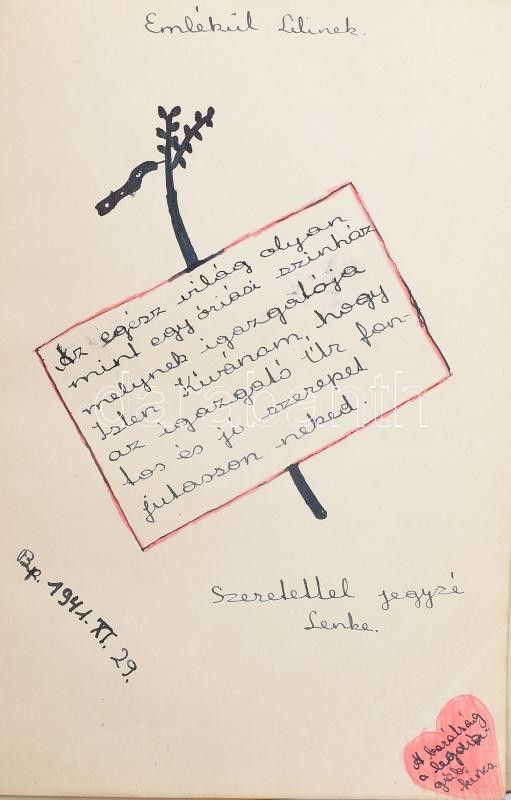 Emlékül Lilinek.
Az egész világ olyan
mint egy óriási szinház
melynek igazgatója
Isten. Kivánom, hogy
az igazgató Úr fon-
tos és jó szerepet
jutasson neked.
Bp. 1941. XI. 29.
Szeretettel jegyzé
Lenke.
A barátság
a legdrá-
gább
kincs
darabanth